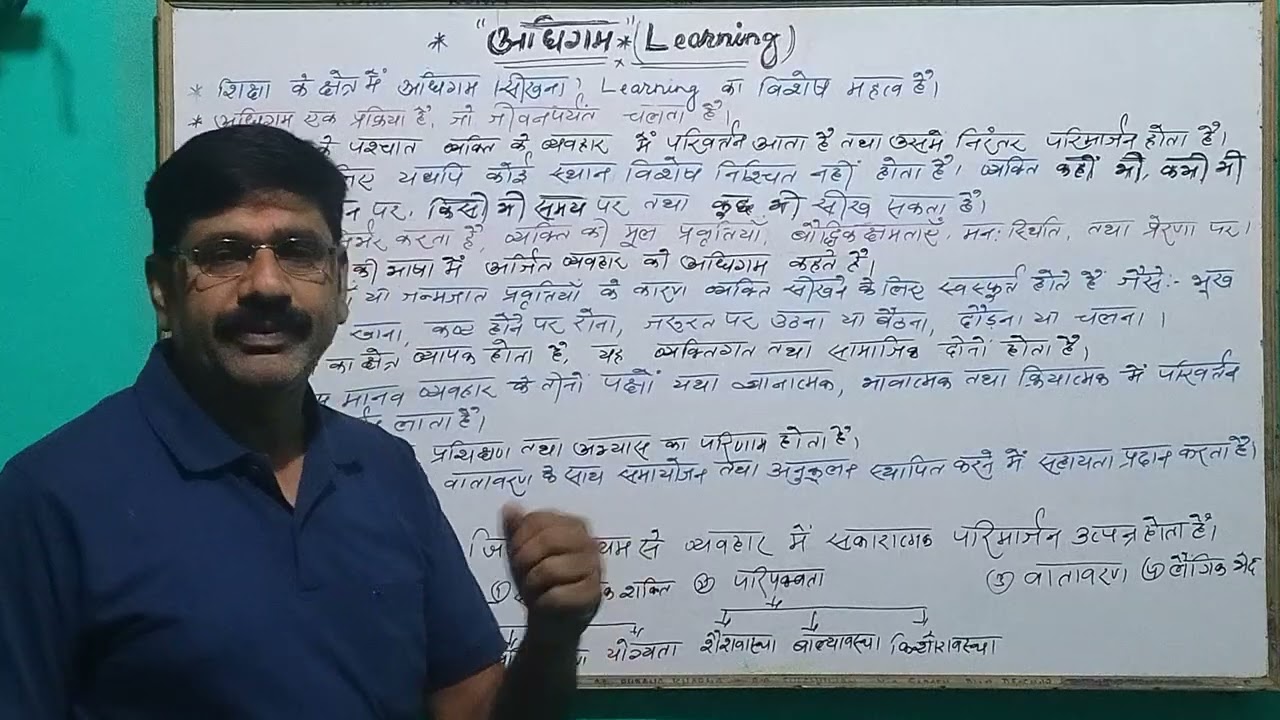 * "अधिगम" * (Learning)
* शिक्षा के क्षेत्र में अधिगम (सीखना) Learning का विशेष महत्व है।
* अधिगम एक प्रक्रिया है, जो जीवनपर्यंत चलता है।
के पश्चात व्यक्ति के व्यवहार में परिवर्तन आता है तथा उसमे निरंतर परिमार्जन होता है।
लिए यद्यपि कोई स्थान विशेष निश्चित नहीं होता है। व्यक्ति कहीं भी, कभी भी
पर, किसी भी समय पर तथा कुछ भी सीख सकता है।
निर्भर करता है, व्यक्ति की मूल प्रवृतियाँ, बौद्धिक क्षमताएँ, मनः स्थिति, तथा प्रेरणा पर।
की भाषा में अर्जित व्यवहार को अधिगम कहते है।
या जन्मजात प्रवृतियों के कारण व्यक्ति सीखने के लिए स्वस्फूर्त होते हैं जैसे:- भूख
खाना, कष्ट होने पर रोना, जरूरत पर उठना या बैठना, दौड़ना या चलना।
का क्षेत्र व्यापक होता है, यह व्यक्तिगत तथा सामाजिक दोनों होता है।
मानव व्यवहार के तीनों पक्षों यथा ज्ञानात्मक, भावात्मक तथा क्रियात्मक में परिवर्तन
लाता है।
प्रशिक्षण तथा अभ्यास का परिणाम होता है।
वातावरण के साथ समायोजन तथा अनुकूलन स्थापित करने में सहायता प्रदान करता है।
से व्यवहार में सकारात्मक परिमार्जन उत्पन्न होता है।
① शक्ति ② परिपक्वता ③ वातावरण ④ लैंगिक भेद
योग्यता शैशवास्था बाल्यावस्था किशोरावस्था